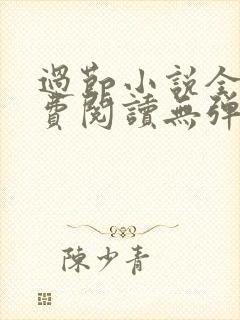 過節小説全
費閱讀無彈
陳少青